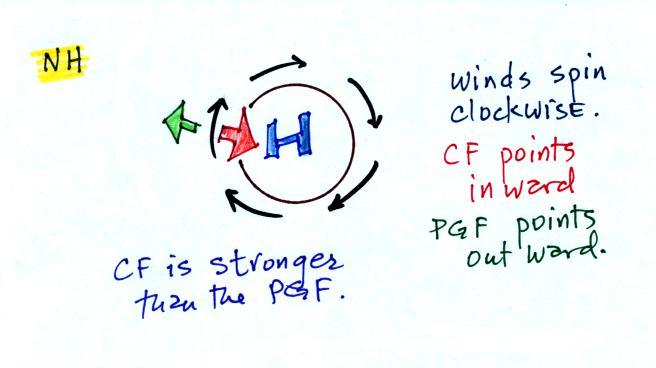 NH
H
winds spin
clockwise.
CF points
inward
PGF points
out ward.
CF is stronger
than the PGF.